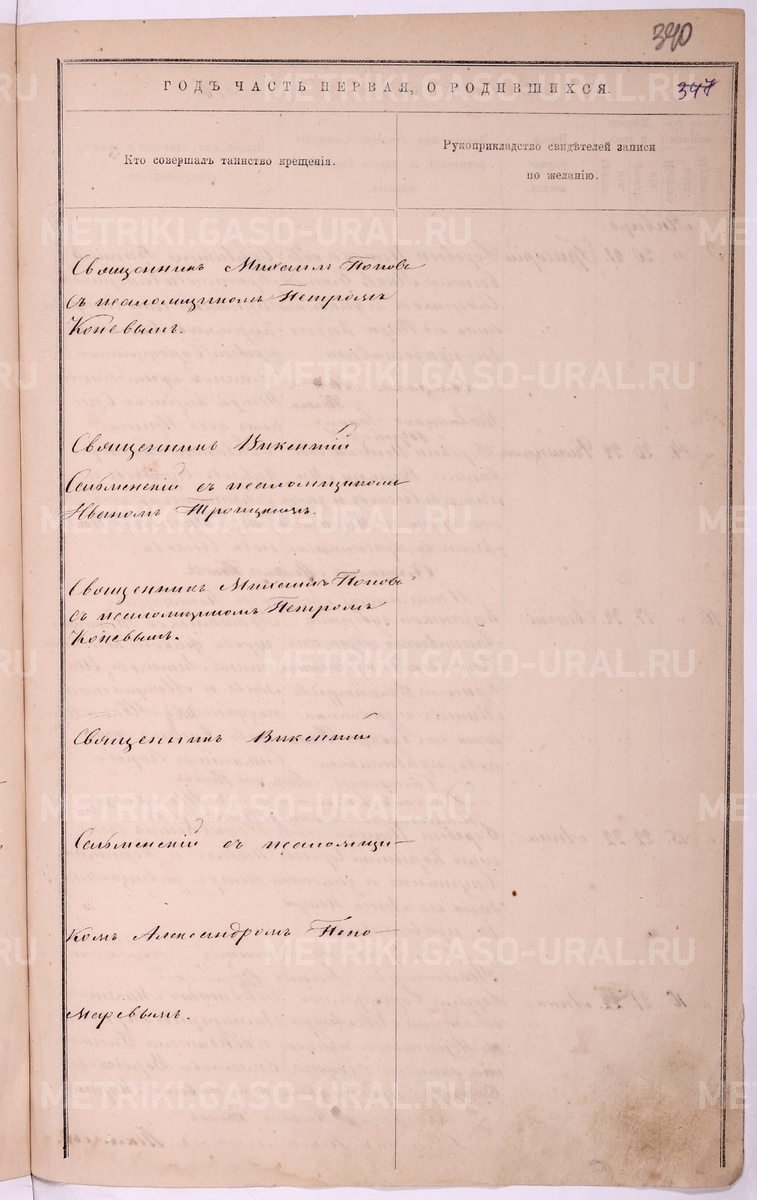 390
ГОДЪ ЧАСТЬ ПЕРВАЯ, О РОДИВШИХСЯ.
347
Кто совершалъ таинство крещенія.
Рукоприкладство свидѣтелей записи
по желанію.
Священникъ Михаилъ Поповъ
съ псаломщикомъ Петромъ
Коневымъ.
Священникъ Викентій
Сельменскій съ псаломщикомъ
Иваномъ
Священникъ Михаилъ Поповъ
съ псаломщикомъ Петромъ
Коневымъ.
Священникъ Викентій
Сельменскій съ псаломщи-
комъ Александромъ Поно-
маревымъ.
METRIKI.GASO-URAL.RU